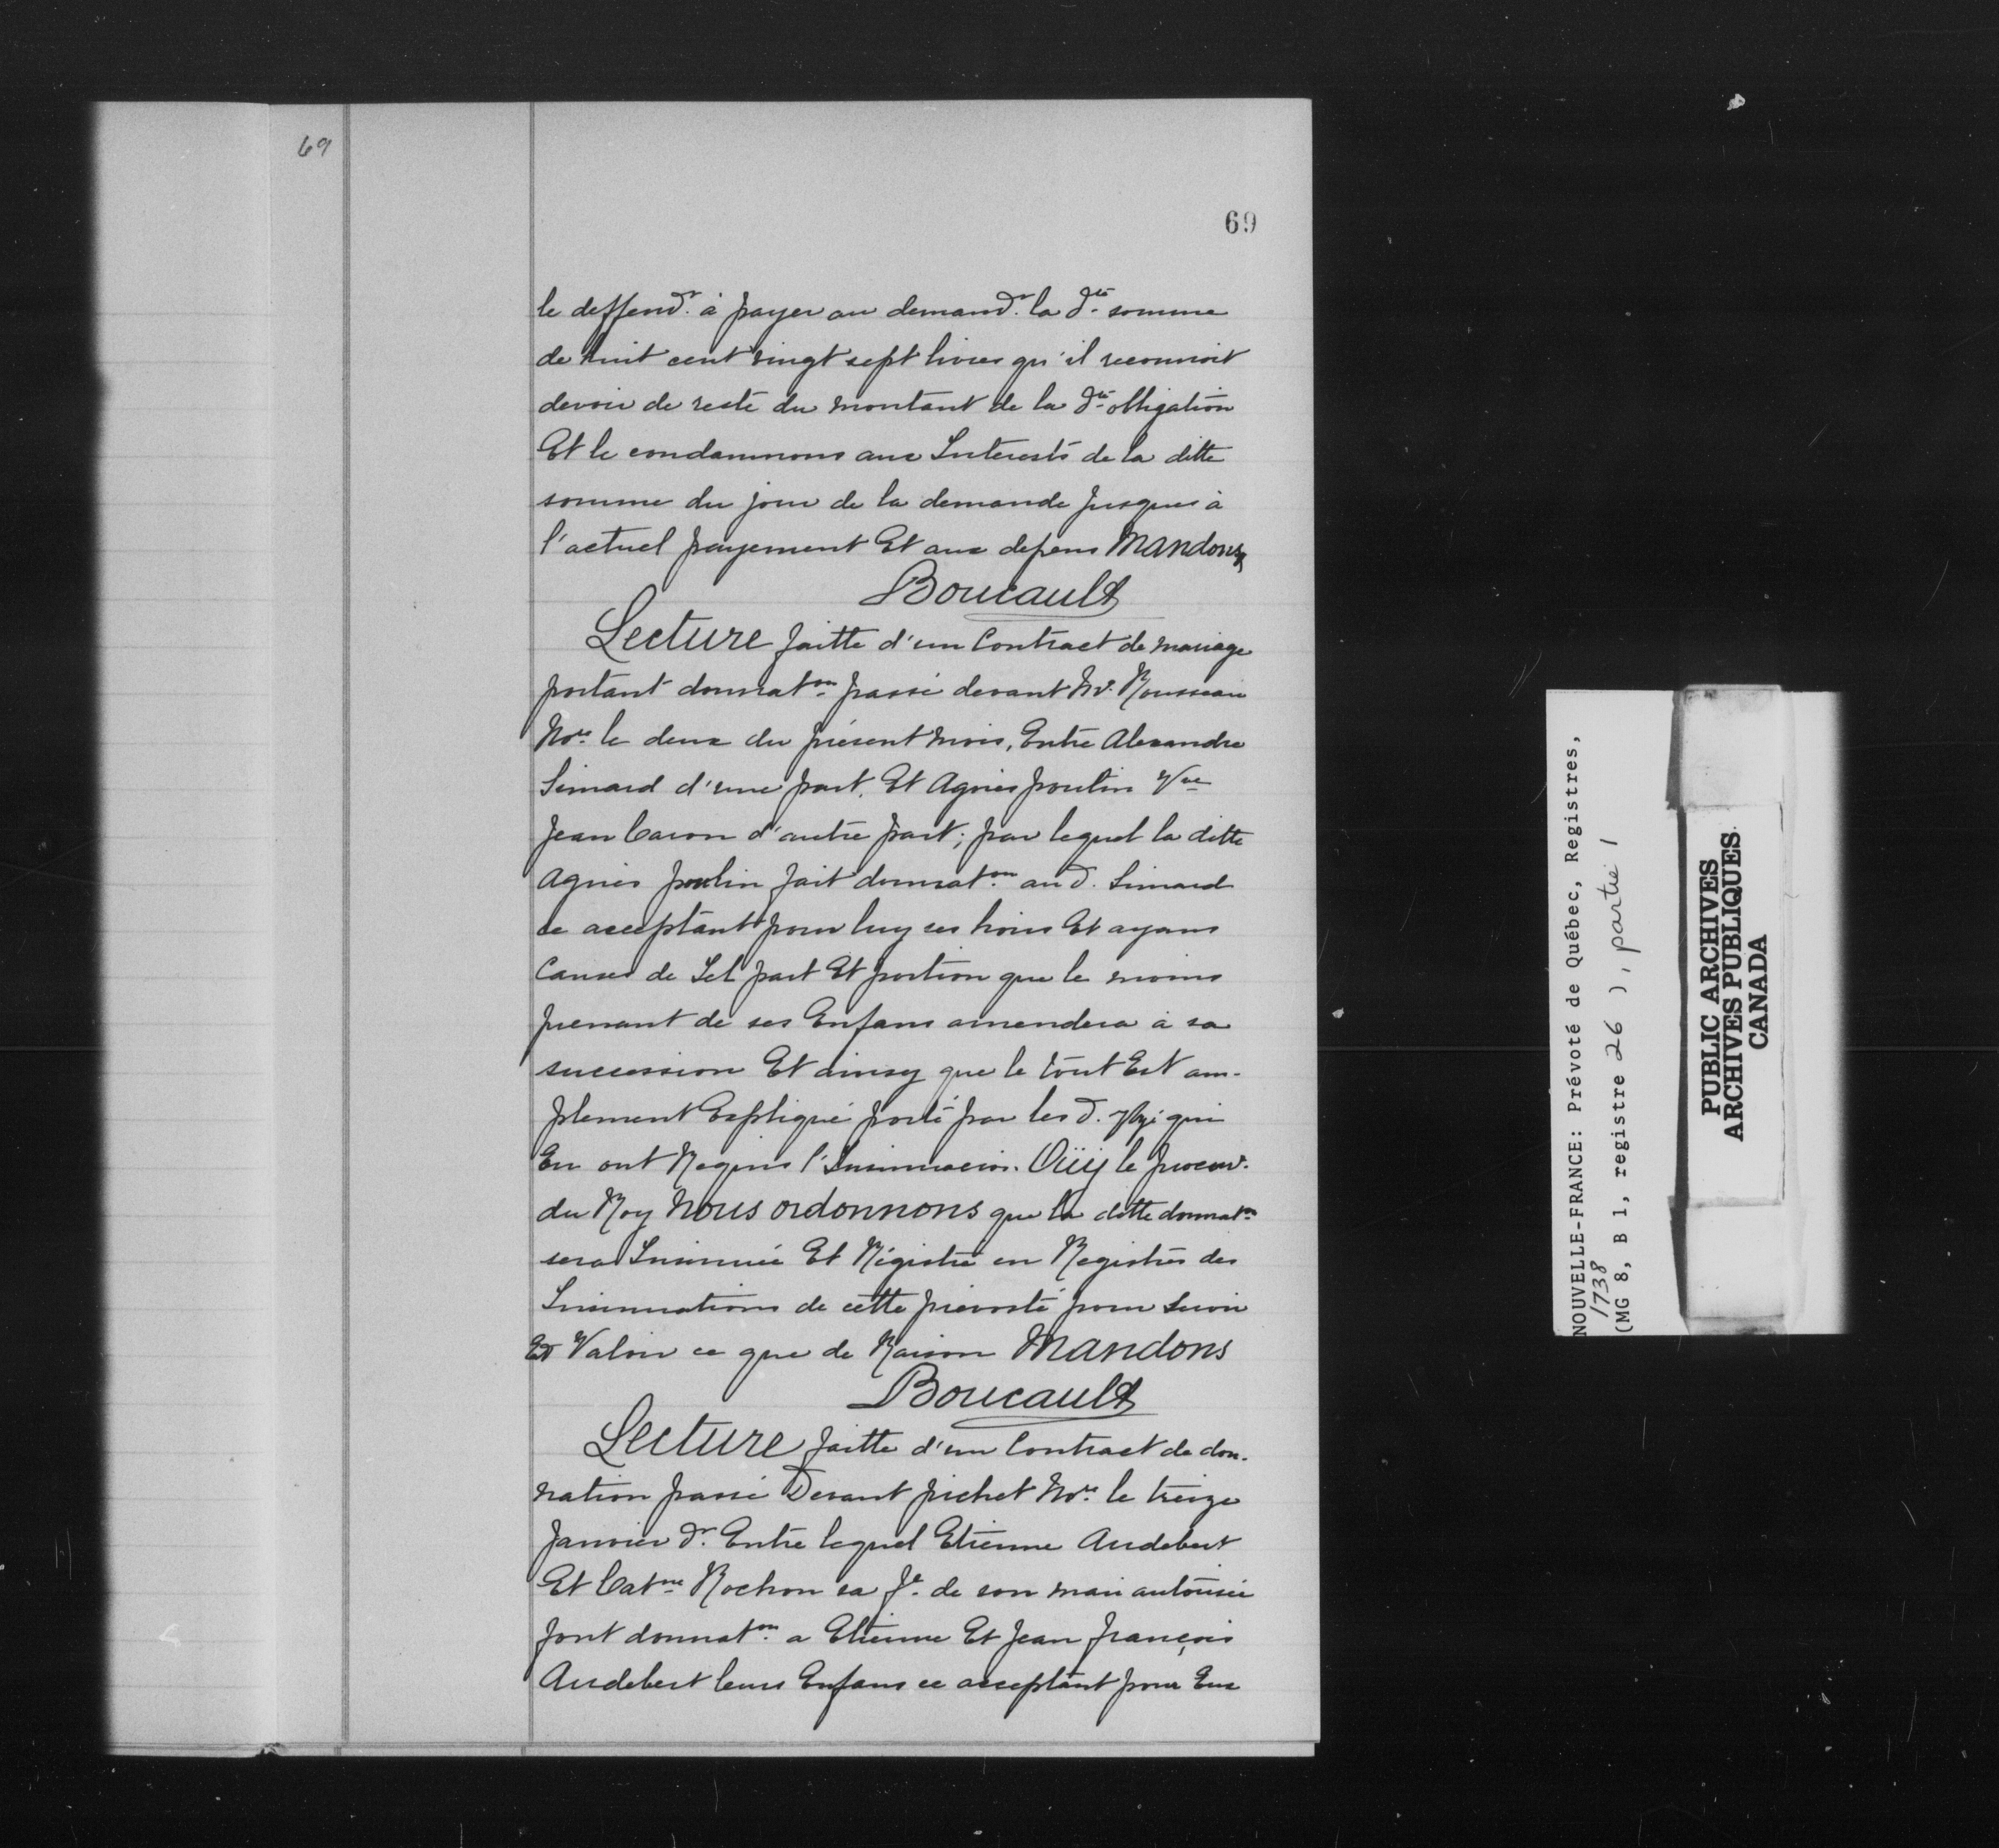 69
69
le deffend.r à payer au demand.r la d.te somme
de huit cent vingt sept livres qu'il reconnoit
devoir de reste du montant de la d.te obligation
Et le condamnons aux Interests de la ditte
somme du jour de la demande jusques à
l'actuel payement Et aux depens Mandons
Boucault
Lecture faitte d'un Contract de mariage
portant donnat.on passé devant Rousseau
No.re le deux du présent mois, Entre Alexandre
Simard d'une part, Et Agnès poulin V.ve
Jean Caron d'autre part; par lequel la ditte
Agnès poulin fait donnat.on au d. Simard
ce acceptant pour luy ses hoirs Et ayans
Causes de Tel part Et portion que le moins
prenant de ses Enfans amendera à sa
succession Et ainsy que le tout Est am-
plement Expliqué porté par les d. qui
En ont Requis l'Insinuacion. Oüy le procur.
du Roy Nous ordonnons que la ditte donnat.on
sera Insinuée Et Régistré en Registres des
Insinuations de cette prevosté pour servir
Et Valoir ce que de Raison Mandons
Boucault
Lecture faitte d'un Contract de don-
nation passé Devant pichet No.re le treize
Janvier d.r Entre lequel Etienne Audebert
Et Cat.ne Rochon sa f.e de son mari autorisée
font donnat.on a Etienne Et Jean françois
Audebert leurs Enfans ce acceptant pour Eux
NOUVELLE-FRANCE: Prévoté de Québec, Registres,
1738
(MG 8, B 1, registre 26 ), partie 1
PUBLIC ARCHIVES
ARCHIVES PUBLIQUES
CANADA